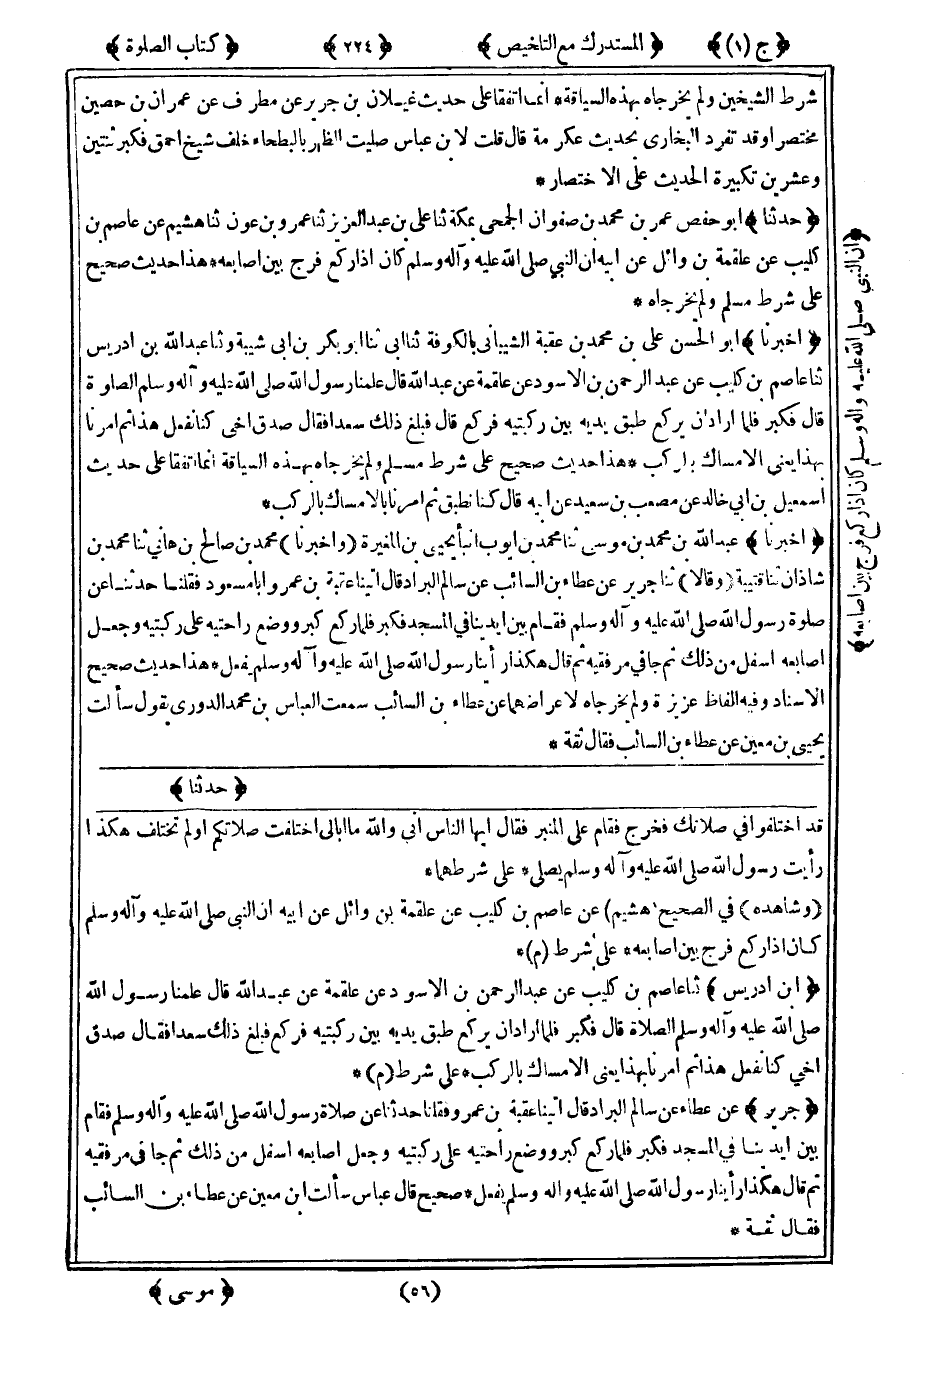 ﴿ ج (١) ﴾ ﴿ المستدرك مع التلخيص ﴾ ﴿ ٢٢٤ ﴾ ﴿ كتاب الصلوة ﴾
شرط الشيخين ولم يخرجاه بهذه السياقة * انما اتفقا على حديث غيلان بن جرير عن مطرف عن عمران بن حصين
مختصرا وقد تفرد البخارى بحديث عكرمة قال قلت لابن عباس صليت الظهر بالبطحاء خلف شيخ احمق فكبر ثنتين
وعشرين تكبيرة الحديث على الاختصار *
﴿ حدثنا ﴾ ابو حفص عمر بن محمد بن صفوان الجمحى بمكة ثنا على بن عبد العزيز ثنا عمرو بن عون ثنا هشيم عن عاصم بن
كليب عن علقمة بن وائل عن ابيه ان النبي صلى الله عليه وآله وسلم كان اذا ركع فرج بين اصابعه * هذا حديث صحيح
على شرط مسلم ولم يخرجاه *
﴿ اخبرنا ﴾ ابو الحسن على بن محمد بن عقبة الشيبانى بالكوفة ثنا ابى ثنا ابو بكر بن ابى شيبة وثنا عبد الله بن ادريس
ثنا عاصم بن كليب عن عبد الرحمن بن الاسود عن علقمة عن عبد الله قال علمنا رسول الله صلى الله عليه وآله وسلم الصلوة
قال فكبر فلما اراد ان يركع طبق يديه بين ركبتيه فركع قال فبلغ ذلك سعدا فقال صدق اخى كنا نفعل هذا ثم امرنا
بهذا يعنى الامساك بالركب * هذا حديث صحيح على شرط مسلم ولم يخرجاه بهذه السياقة انما اتفقا على حديث
اسمعيل بن ابي خالد عن مصعب بن سعيد عن ابيه قال كنا نطبق ثم امرنا بالامساك بالركب *
﴿ اخبرنا ﴾ عبد الله بن محمد بن موسى ثنا محمد بن ايوب انبأ يحيى بن المغيرة (واخبرنا) محمد بن صالح بن هاني ثنا محمد بن
شاذان ثنا قتيبة (وقالا) ثنا جرير عن عطاء بن السائب عن سالم البراد قال اتينا عقبة بن عمرو ابا مسعود فقلنا حدثنا عن
صلوة رسول الله صلى الله عليه وآله وسلم فقام بين ايدينا في المسجد فكبر فلما ركع كبر ووضع راحتيه على ركبتيه وجعل
اصابعه اسفل من ذلك ثم جافى مرفقيه ثم قال هكذا رأينا رسول الله صلى الله عليه وآله وسلم يفعل * هذا حديث صحيح
الاسناد وفيه الفاظ عزيزة ولم يخرجاه لاعراضهما عن عطاء بن السائب سمعت العباس بن محمد الدورى يقول سألت
يحيى بن معين عن عطاء بن السائب فقال ثقة *
﴿ حدثنا ﴾
قد اختلفوا في صلاتك فخرج فقام على المنبر فقال ايها الناس انى والله ما ابالى اختلفت صلاتكم او لم تختلف هكذا
رأيت رسول الله صلى الله عليه وآله وسلم يصلى * على شرطهما *
(وشاهده) في الصحيح (هشيم) عن عاصم بن كليب عن علقمة بن وائل عن ابيه ان النبى صلى الله عليه وآله وسلم
كان اذا ركع فرج بين اصابعه * على شرط (م) *
﴿ ابن ادريس ﴾ ثنا عاصم بن كليب عن عبد الرحمن بن الاسود عن علقمة عن عبد الله قال علمنا رسول الله
صلى الله عليه وآله وسلم الصلاة قال فكبر فلما اراد ان يركع طبق يديه بين ركبتيه فركع فبلغ ذلك سعدا فقال صدق
اخي كنا نفعل هذا ثم امرنا بهذا يعنى الامساك بالركب * على شرط (م) *
﴿ جرير ﴾ عن عطاء عن سالم البراد قال اتينا عقبة بن عمرو فقلنا حدثنا عن صلاة رسول الله صلى الله عليه وآله وسلم فقام
بين ايدينا في المسجد فكبر فلما ركع كبر ووضع راحتيه على ركبتيه وجعل اصابعه اسفل من ذلك ثم جافى مرفقيه
ثم قال هكذا رأينا رسول الله صلى الله عليه واله وسلم يفعل * صحيح قال عباس سألت ابن معين عن عطاء بن السائب
فقال ثقة *
﴿ان النبي صلى الله عليه واله وسلم كان اذا ركع فرج بين اصابعه﴾
(٥٦) ﴿ موسى ﴾